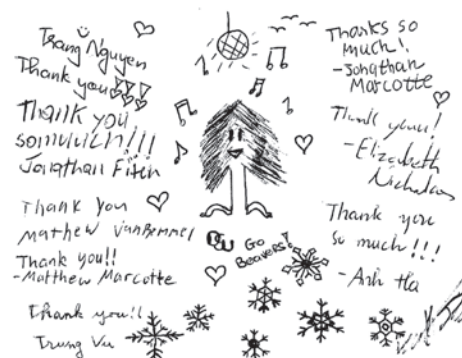 Trang Nguyen
Thank you!!!
Thank you
somuuch!!!
Jonathan
Thank you
Matthew VanBemmel
Thank you!!
-Matthew Marcotte
thank you!!
Trung Vu
OSU Go
Beavers!
Thanks so
much!
-Jonathan
Marcotte
Thank you!
-Elizabeth
Nicholas
Thank you
so much!!!
-Anh Ha